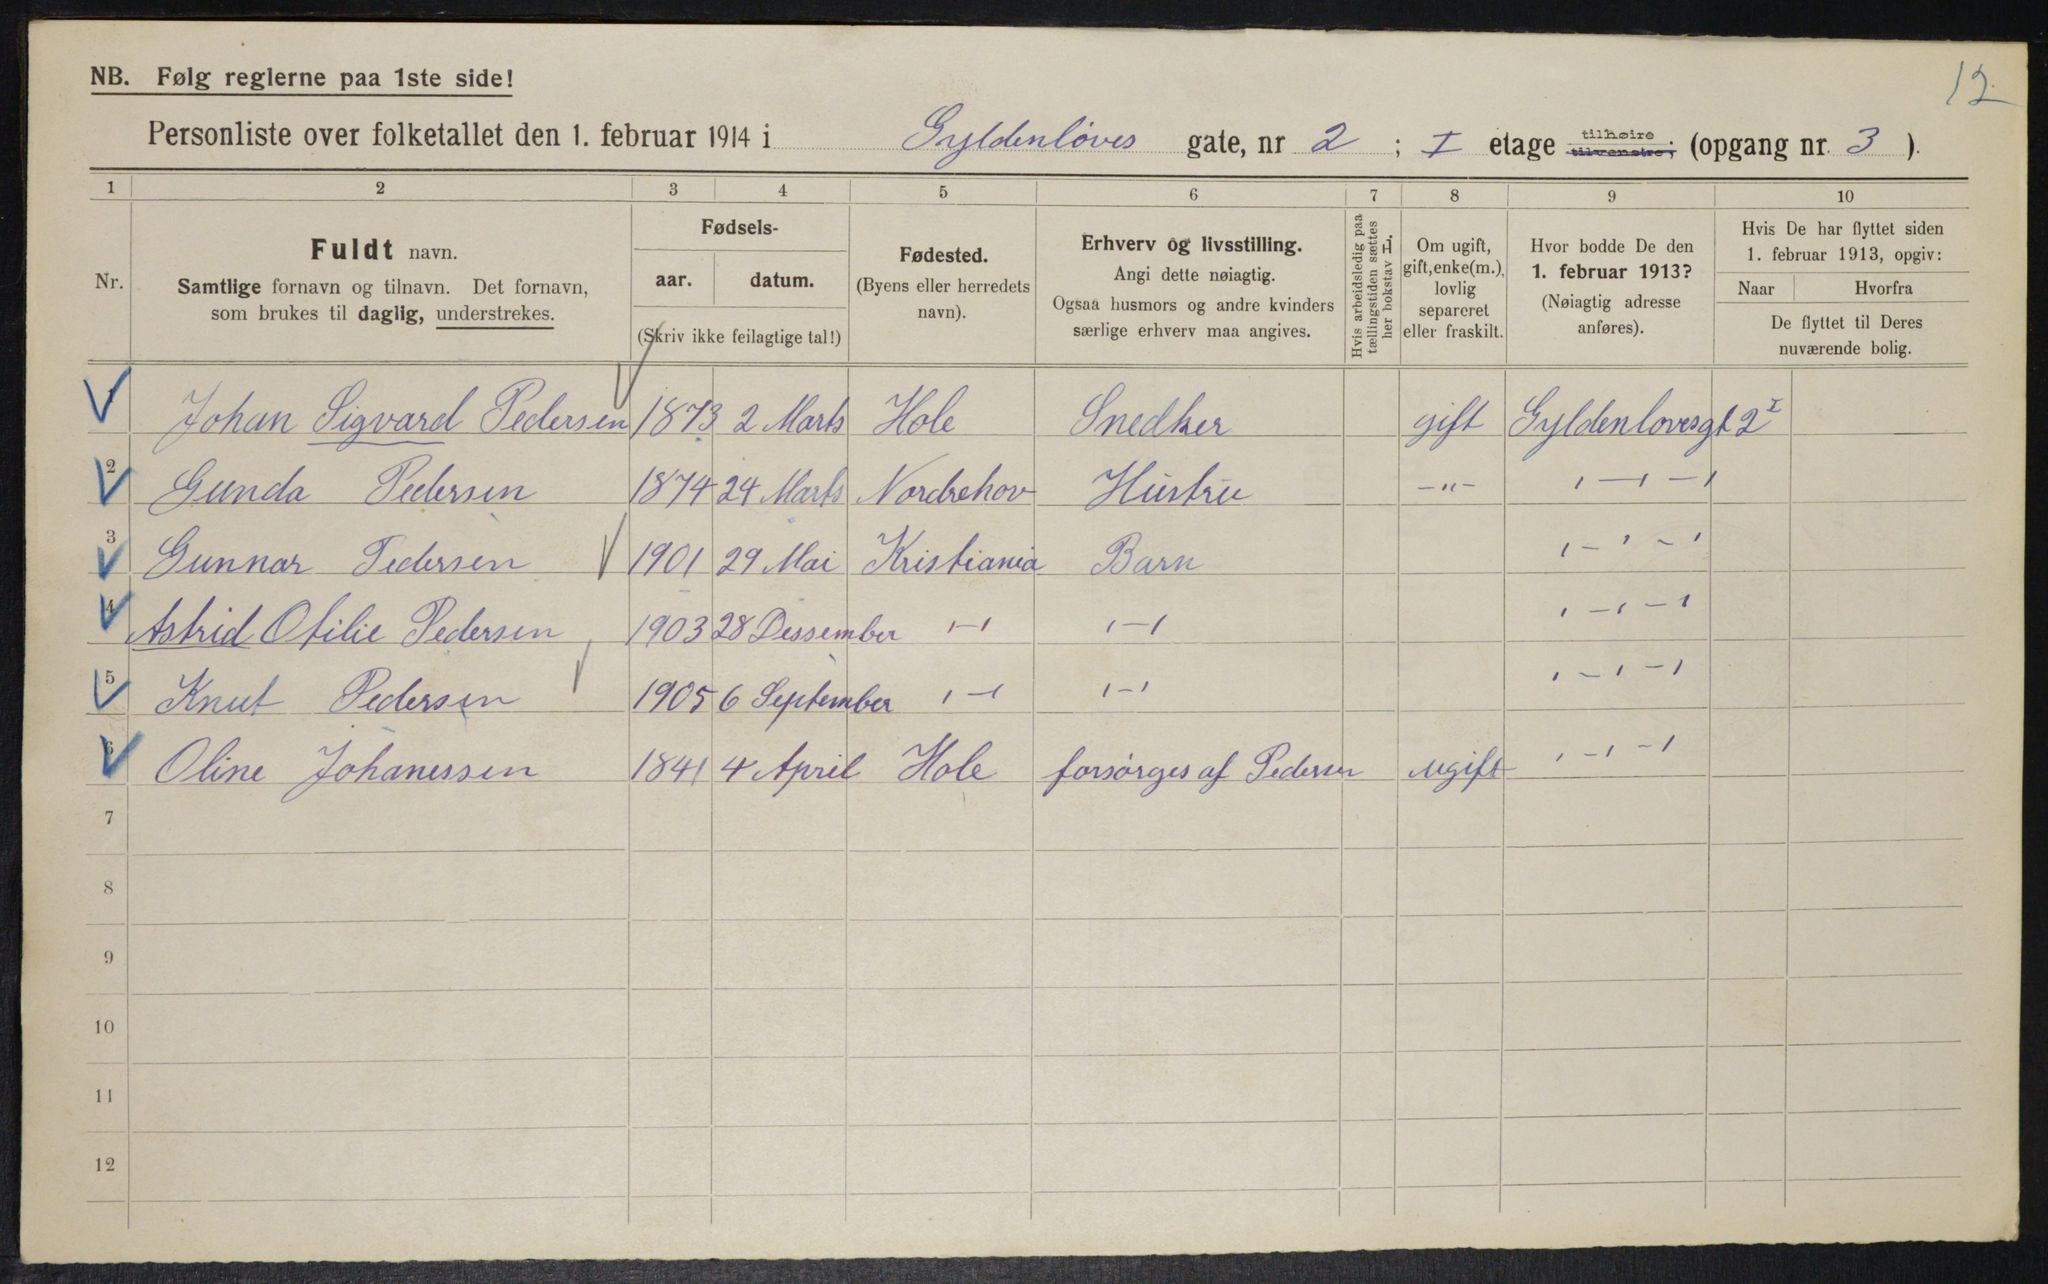 12
NB. Følg reglerne paa 1ste side!
Personliste over folketallet den 1. februar 1914 i Gyldenløves gate, nr 2 ; I etage tilhøire tilvenstre; (opgang nr. 3 ).
1 2 3 4 5 6 7 8 9 10
Nr.
Fuldt navn.
Samtlige fornavn og tilnavn. Det fornavn,
som brukes til daglig, understrekes.
Fødsels-
aar. datum.
(Skriv ikke feilagtige tal!)
Fødested.
(Byens eller herredets
navn).
Erhverv og livsstilling.
Angi dette nøiagtig.
Ogsaa husmors og andre kvinders
særlige erhverv maa angives.
Hvis arbeidsledig paa
tællingstiden sættes
her bokstav L.
Om ugift,
gift, enke(m.),
lovlig
separeret
eller fraskilt.
Hvor bodde De den
1. februar 1913?
(Nøiagtig adresse
anføres).
Hvis De har flyttet siden
1. februar 1913, opgiv:
Naar Hvorfra
De flyttet til Deres
nuværende bolig.
1 Johan Sigvard Pedersen 1873 2 Marts Hole Snedker gift Gyldenlovesgt 2 I
2 Gunda Pedersen 1874 24 Marts Nordrehov Hustru -"- ı-ı-ı
3 Gunnar Pedersen 1901 29 Mai Kristiania Barn ı-ı-ı
4 Astrid Otilie Pedersen 1903 28 Dessember ı-ı ı-ı ı-ı-ı
5 Knut Pedersen 1905 6 September ı-ı ı-ı ı-ı-ı
6 Oline Johanessen 1841 4 April Hole forsørges af Pedersen ugift ı-ı-ı
7
8
9
10
11
12